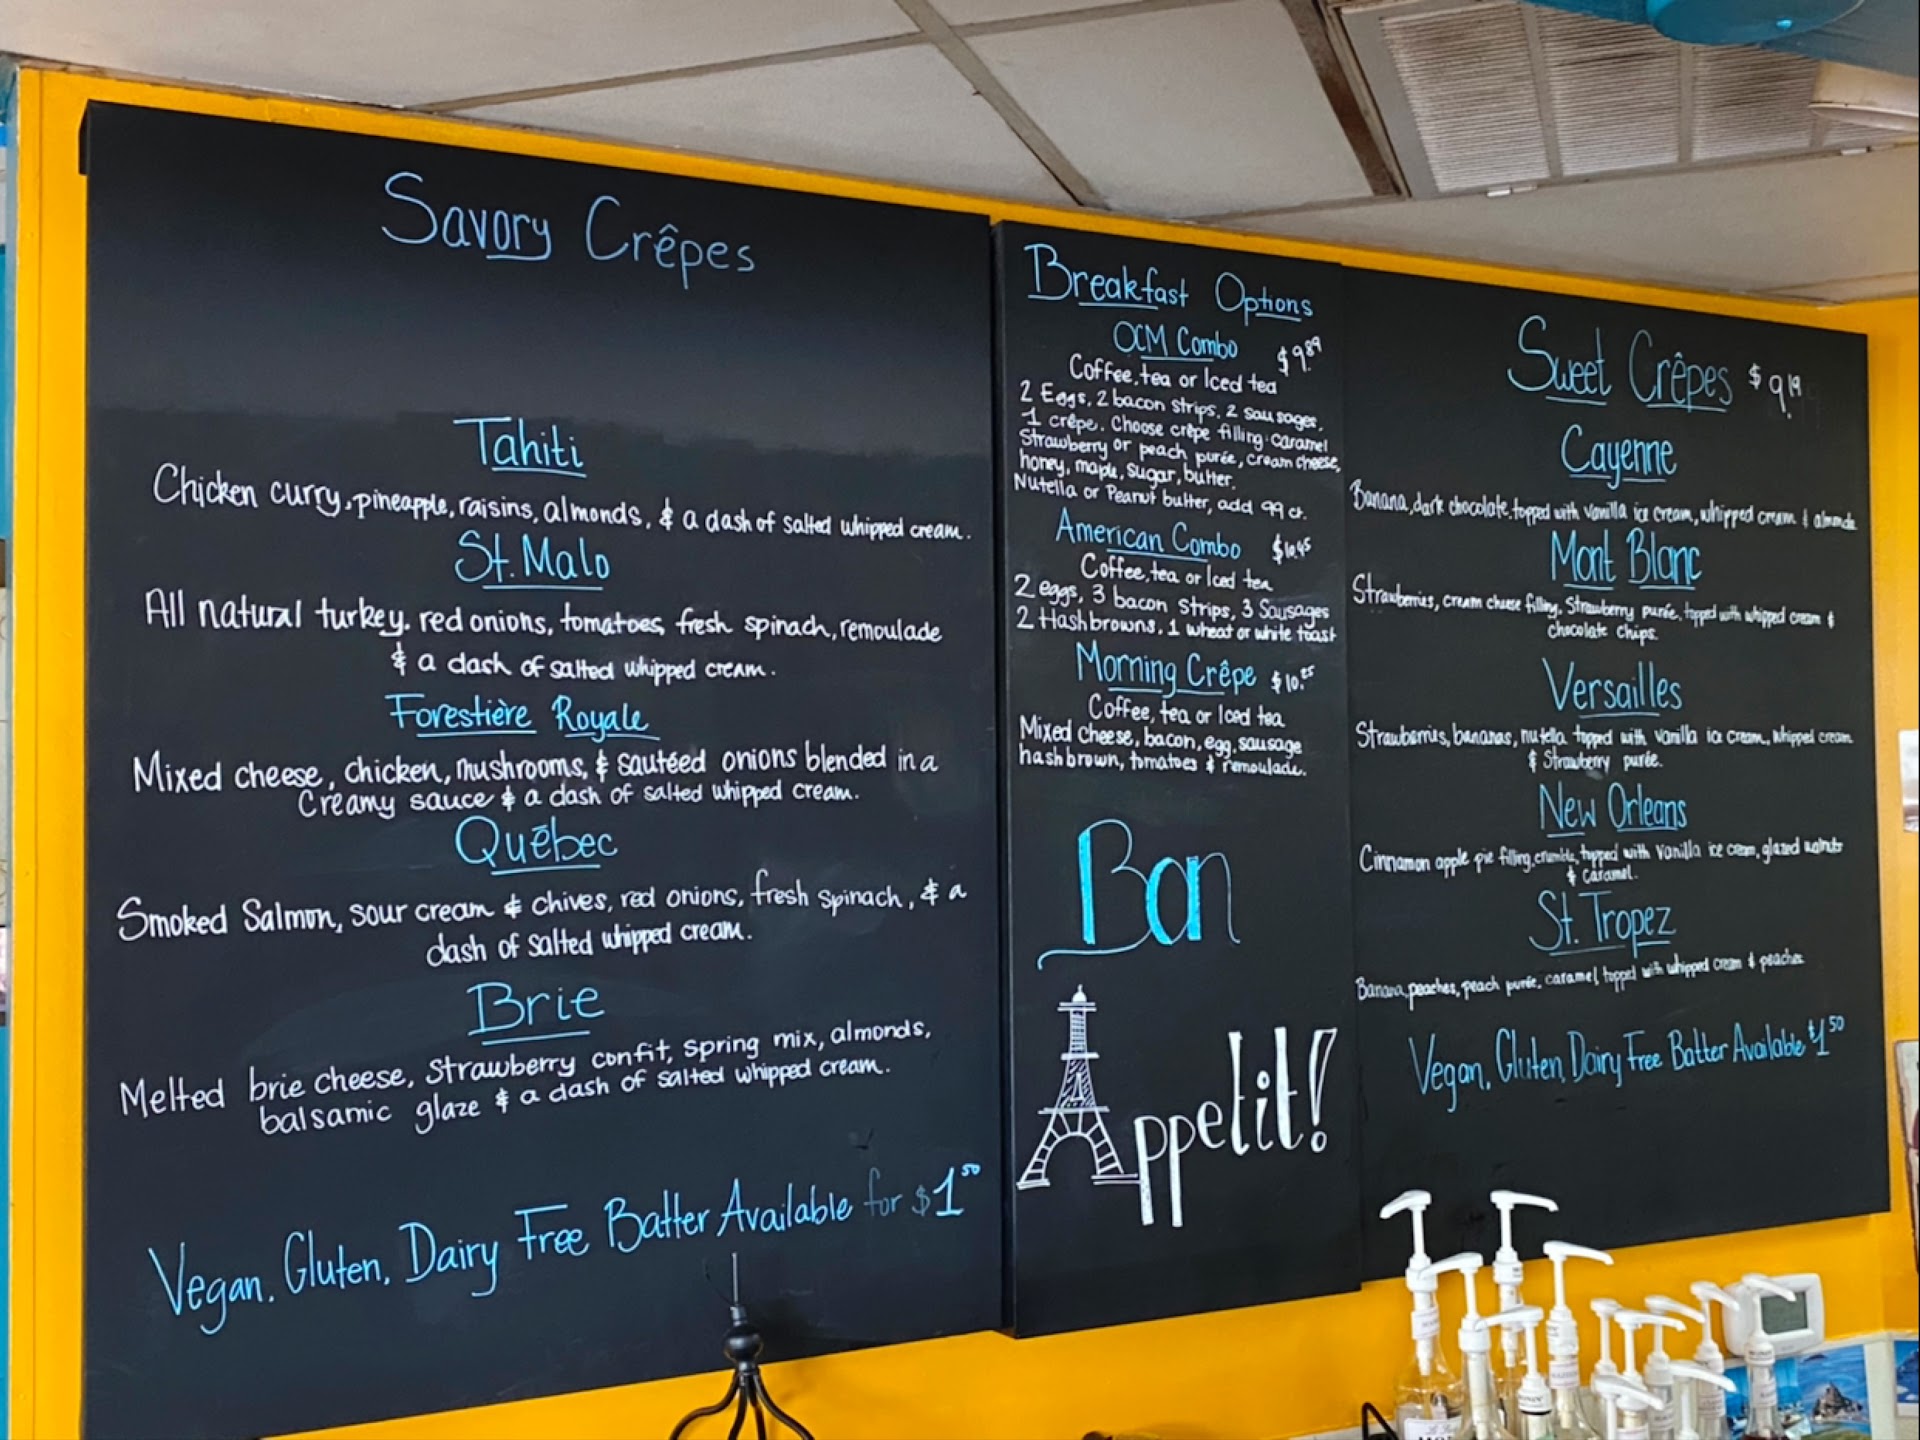 Savory Crêpes
Tahiti
Chicken curry, pineapple, raisins, almonds, & a dash of salted whipped cream.
St. Malo
All natural turkey, red onions, tomatoes, fresh spinach, remoulade
& a dash of salted whipped cream.
Forestière Royale
Mixed cheese, chicken, mushrooms, & sautéed onions blended in a
Creamy sauce & a dash of salted whipped cream.
Québec
Smoked Salmon, sour cream & chives, red onions, fresh spinach, & a
dash of salted whipped cream.
Brie
Melted brie cheese, Strawberry confit, spring mix, almonds,
balsamic glaze & a dash of salted whipped cream.
Vegan, Gluten, Dairy Free Batter Available for $1.50
Breakfast Options
OCM Combo $9.89
Coffee, tea or Iced tea
2 Eggs, 2 bacon strips, 2 sausages,
1 crêpe. Choose crêpe filling: caramel
Strawberry or peach purée, cream cheese,
honey, maple, sugar, butter.
Nutella or Peanut butter, add 99 ct.
American Combo $10.45
Coffee, tea or Iced tea
2 eggs, 3 bacon strips, 3 Sausages
2 Hashbrowns, 1 wheat or white toast
Morning Crêpe $10.25
Coffee, tea or Iced tea
Mixed cheese, bacon, egg, sausage
hashbrown, tomatoes & remoulade.
Bon
Appetit!
Sweet Crêpes $9.19
Cayenne
Banana, dark chocolate, topped with vanilla ice cream, whipped cream & almonds
Mont Blanc
Strawberries, cream cheese filling, Strawberry purée, topped with whipped cream &
chocolate chips.
Versailles
Strawberries, bananas, nutella topped with vanilla ice cream, whipped cream
& Strawberry purée.
New Orleans
Cinnamon apple pie filling, crumble, topped with vanilla ice cream, glazed walnuts
& caramel.
St. Tropez
Banana, peaches, peach purée, caramel, topped with whipped cream & peaches
Vegan, Gluten, Dairy Free Batter Available $1.50